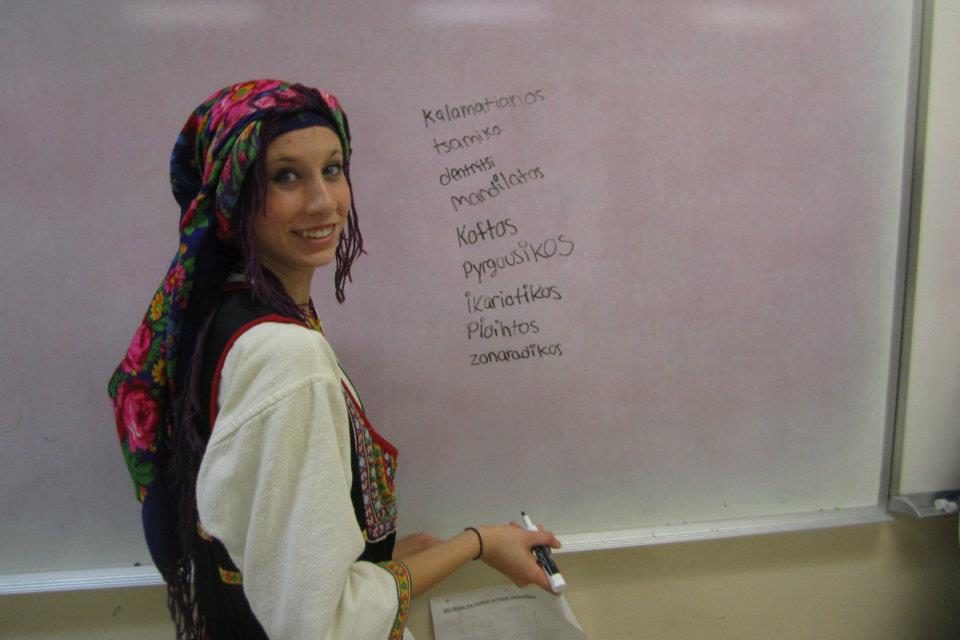 kalamatianos
tsamiko
dentritsi
mandilatos
Koftos
Pyrgousikos
ikariotikos
Pidihtos
zonaradikos